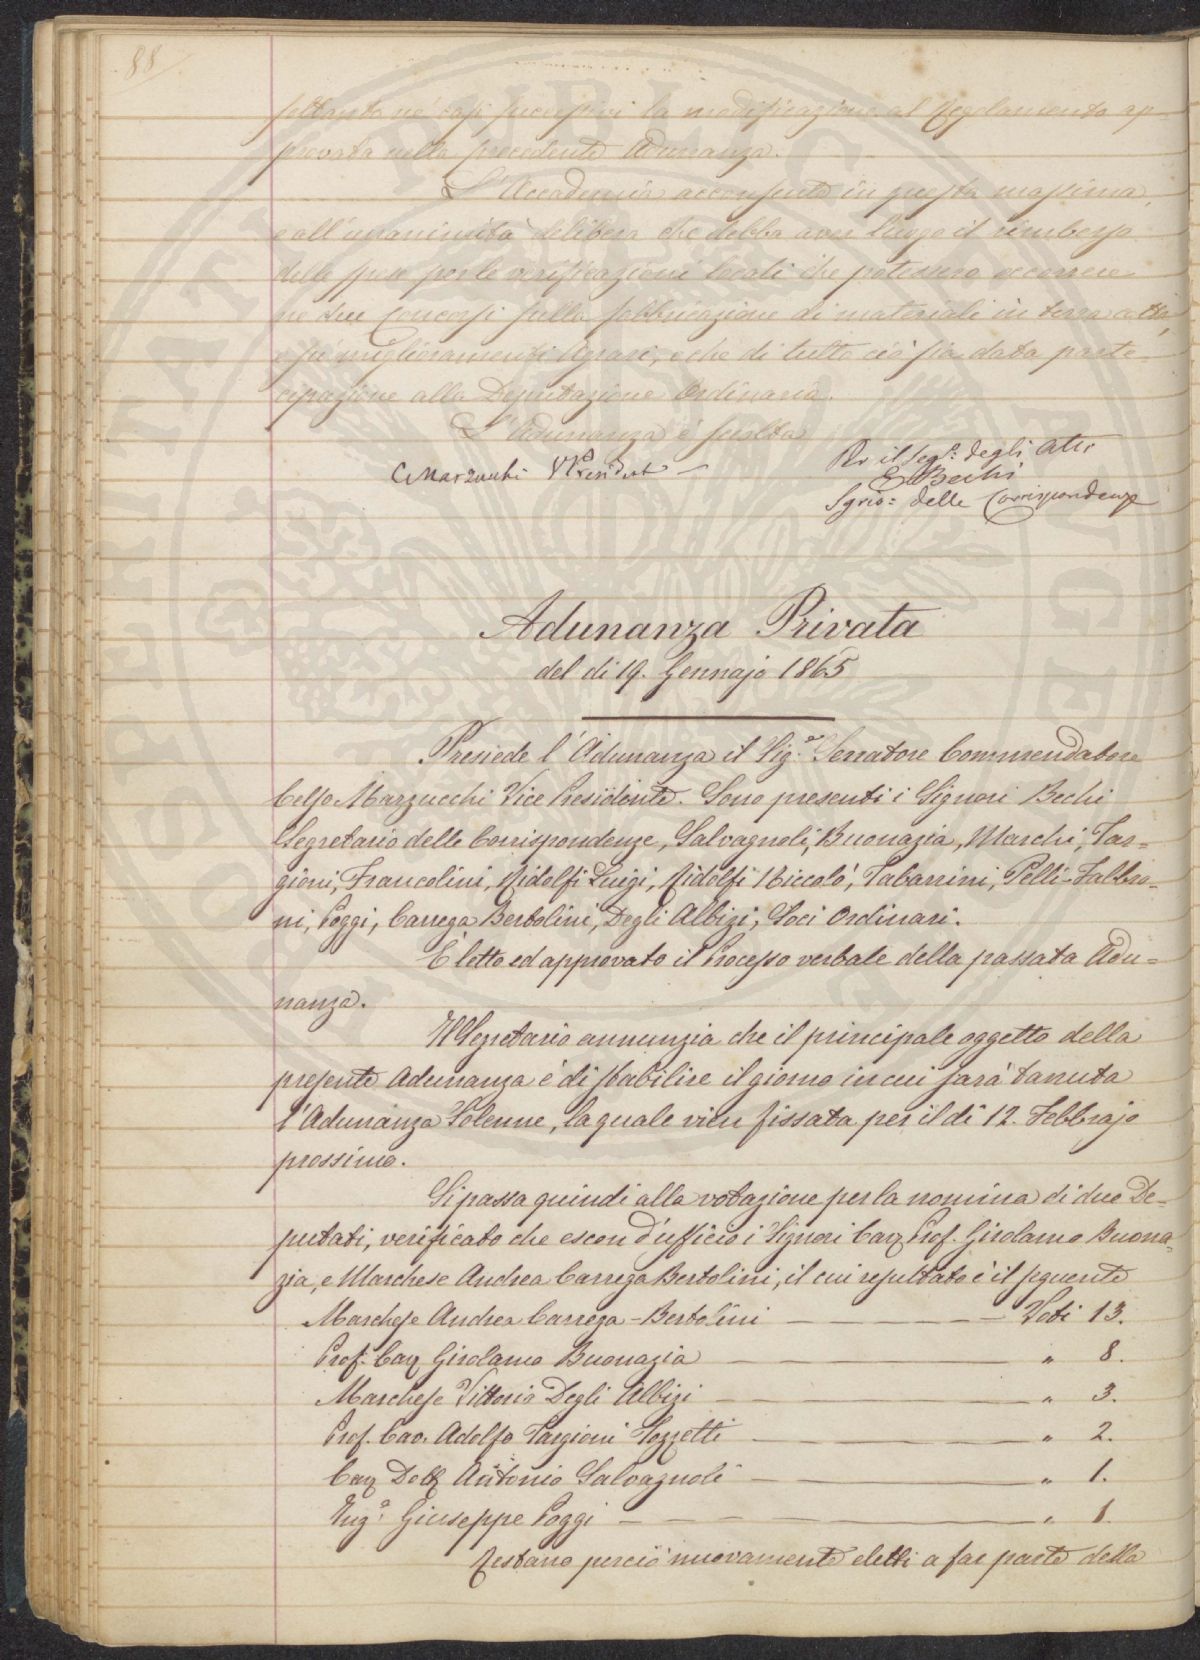 88
soltanto ne' casi successivi la modificazione al Regolamento ap=
provata nella precedente Adunanza.
L'Accademia acconsente in questa massima,
e all'unanimità delibera che debba aver luogo il rimborso
delle spese per le verificazioni locali che potessero occorrere
ne due Concorsi sulla fabbricazione di materiali in terra cotta,
e pe' miglioramenti Agrari, e che di tutto ciò sia data parte=
cipazione alla Deputazione Ordinaria.
L'Adunanza è sciolta
C Marzucchi VPresidente
Per il Seg.º degli Atti
E Bechi
Sgrio: delle Corrispondenze
Adunanza Privata
del dì 19. Gennajo 1865
Presiede l'Adunanza il Sig.e Senatore Commendatore
Celso Marzucchi Vice Presidente. Sono presenti i Signori Bechi
Segretario delle Corrispondenze, Salvagnoli, Buonazia, Marchi, Tar=
gioni, Francolini, Ridolfi Luigi, Ridolfi Niccolò, Tabarrini, Pelli-Fabbro=
ni, Poggi, Carrega Bertolini, Degli Albizi, Soci Ordinari.
È letto ed approvato il Processo verbale della passata Adu=
nanza.
Il Segretario annunzia che il principale oggetto della
presente Adunanza è di stabilire il giorno in cui sarà tenuta
l'Adunanza Solenne, la quale vien fissata per il dì 12. Febbrajo
prossimo.
Si passa quindi alla votazione per la nomina di due De=
putati, verificato che escon d'ufficio i Signori Cav. Prof. Girolamo Buona=
zia, e Marchese Andrea Carrega Bertolini, il cui resultato è il seguente
Marchese Andrea Carrega-Bertolini — Voti 13.
Prof. Cav. Girolamo Buonazia — " 8.
Marchese Vittorio Degli Albizi — " 3.
Prof. Cav. Adolfo Targioni Tozzetti — " 2.
Cav. Dott. Antonio Salvagnoli — " 1.
Ing.e Giuseppe Poggi — " 1.
Restano perciò nuovamente eletti a far parte della
OPEN PUBLIC